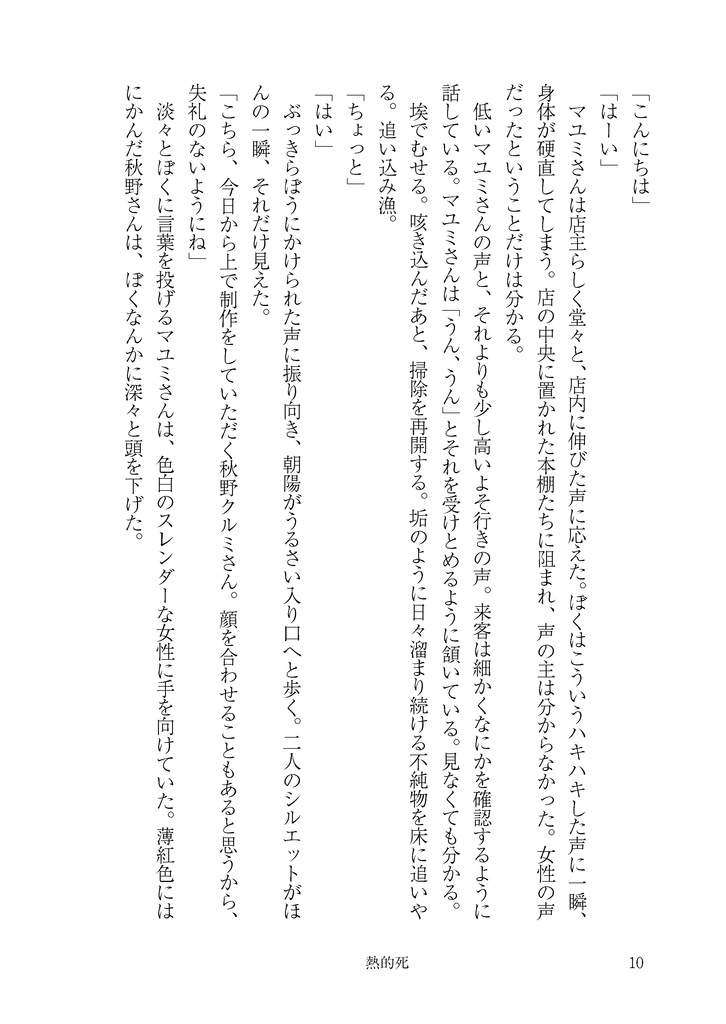 「こんにちは」
「はーい」
　マユミさんは店主らしく堂々と、店内に伸びた声に応えた。ぼくはこういうハキハキした声に一瞬、
身体が硬直してしまう。店の中央に置かれた本棚たちに阻まれ、声の主は分からなかった。女性の声
だったということだけは分かる。
　低いマユミさんの声と、それよりも少し高いよそ行きの声。来客は細かくなにかを確認するように
話している。マユミさんは「うん、うん」とそれを受けとめるように頷いている。見なくても分かる。
　埃でむせる。咳き込んだあと、掃除を再開する。垢のように日々溜まり続ける不純物を床に追いや
る。追い込み漁。
「ちょっと」
「はい」
　ぶっきらぼうにかけられた声に振り向き、朝陽がうるさい入り口へと歩く。二人のシルエットがほ
んの一瞬、それだけ見えた。
「こちら、今日から上で制作をしていただく秋野クルミさん。顔を合わせることもあると思うから、
失礼のないようにね」
　淡々とぼくに言葉を投げるマユミさんは、色白のスレンダーな女性に手を向けていた。薄紅色には
にかんだ秋野さんは、ぼくなんかに深々と頭を下げた。
熱的死
10